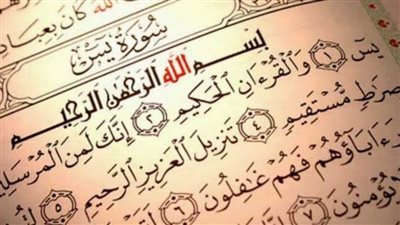 كَانَ بِعِبَادِ
سُورَةُ يسٓ
بِسْمِ اللَّهِ الرَّحْمَٰنِ الرَّحِيمِ
يسٓ ١ وَالْقُرْءَانِ الْحَكِيمِ ٢ إِنَّكَ لَمِنَ الْمُرْسَلِ
صِرَطٍ مُّسْتَقِيمٍ ٤ تَنزِيلَ الْعَزِيزِ الرَّحِيمِ ٥ لِتُ
ءَابَآؤُهُمْ فَهُمْ غَٰفِلُونَ ٦
يُؤْمِنُونَ ٧